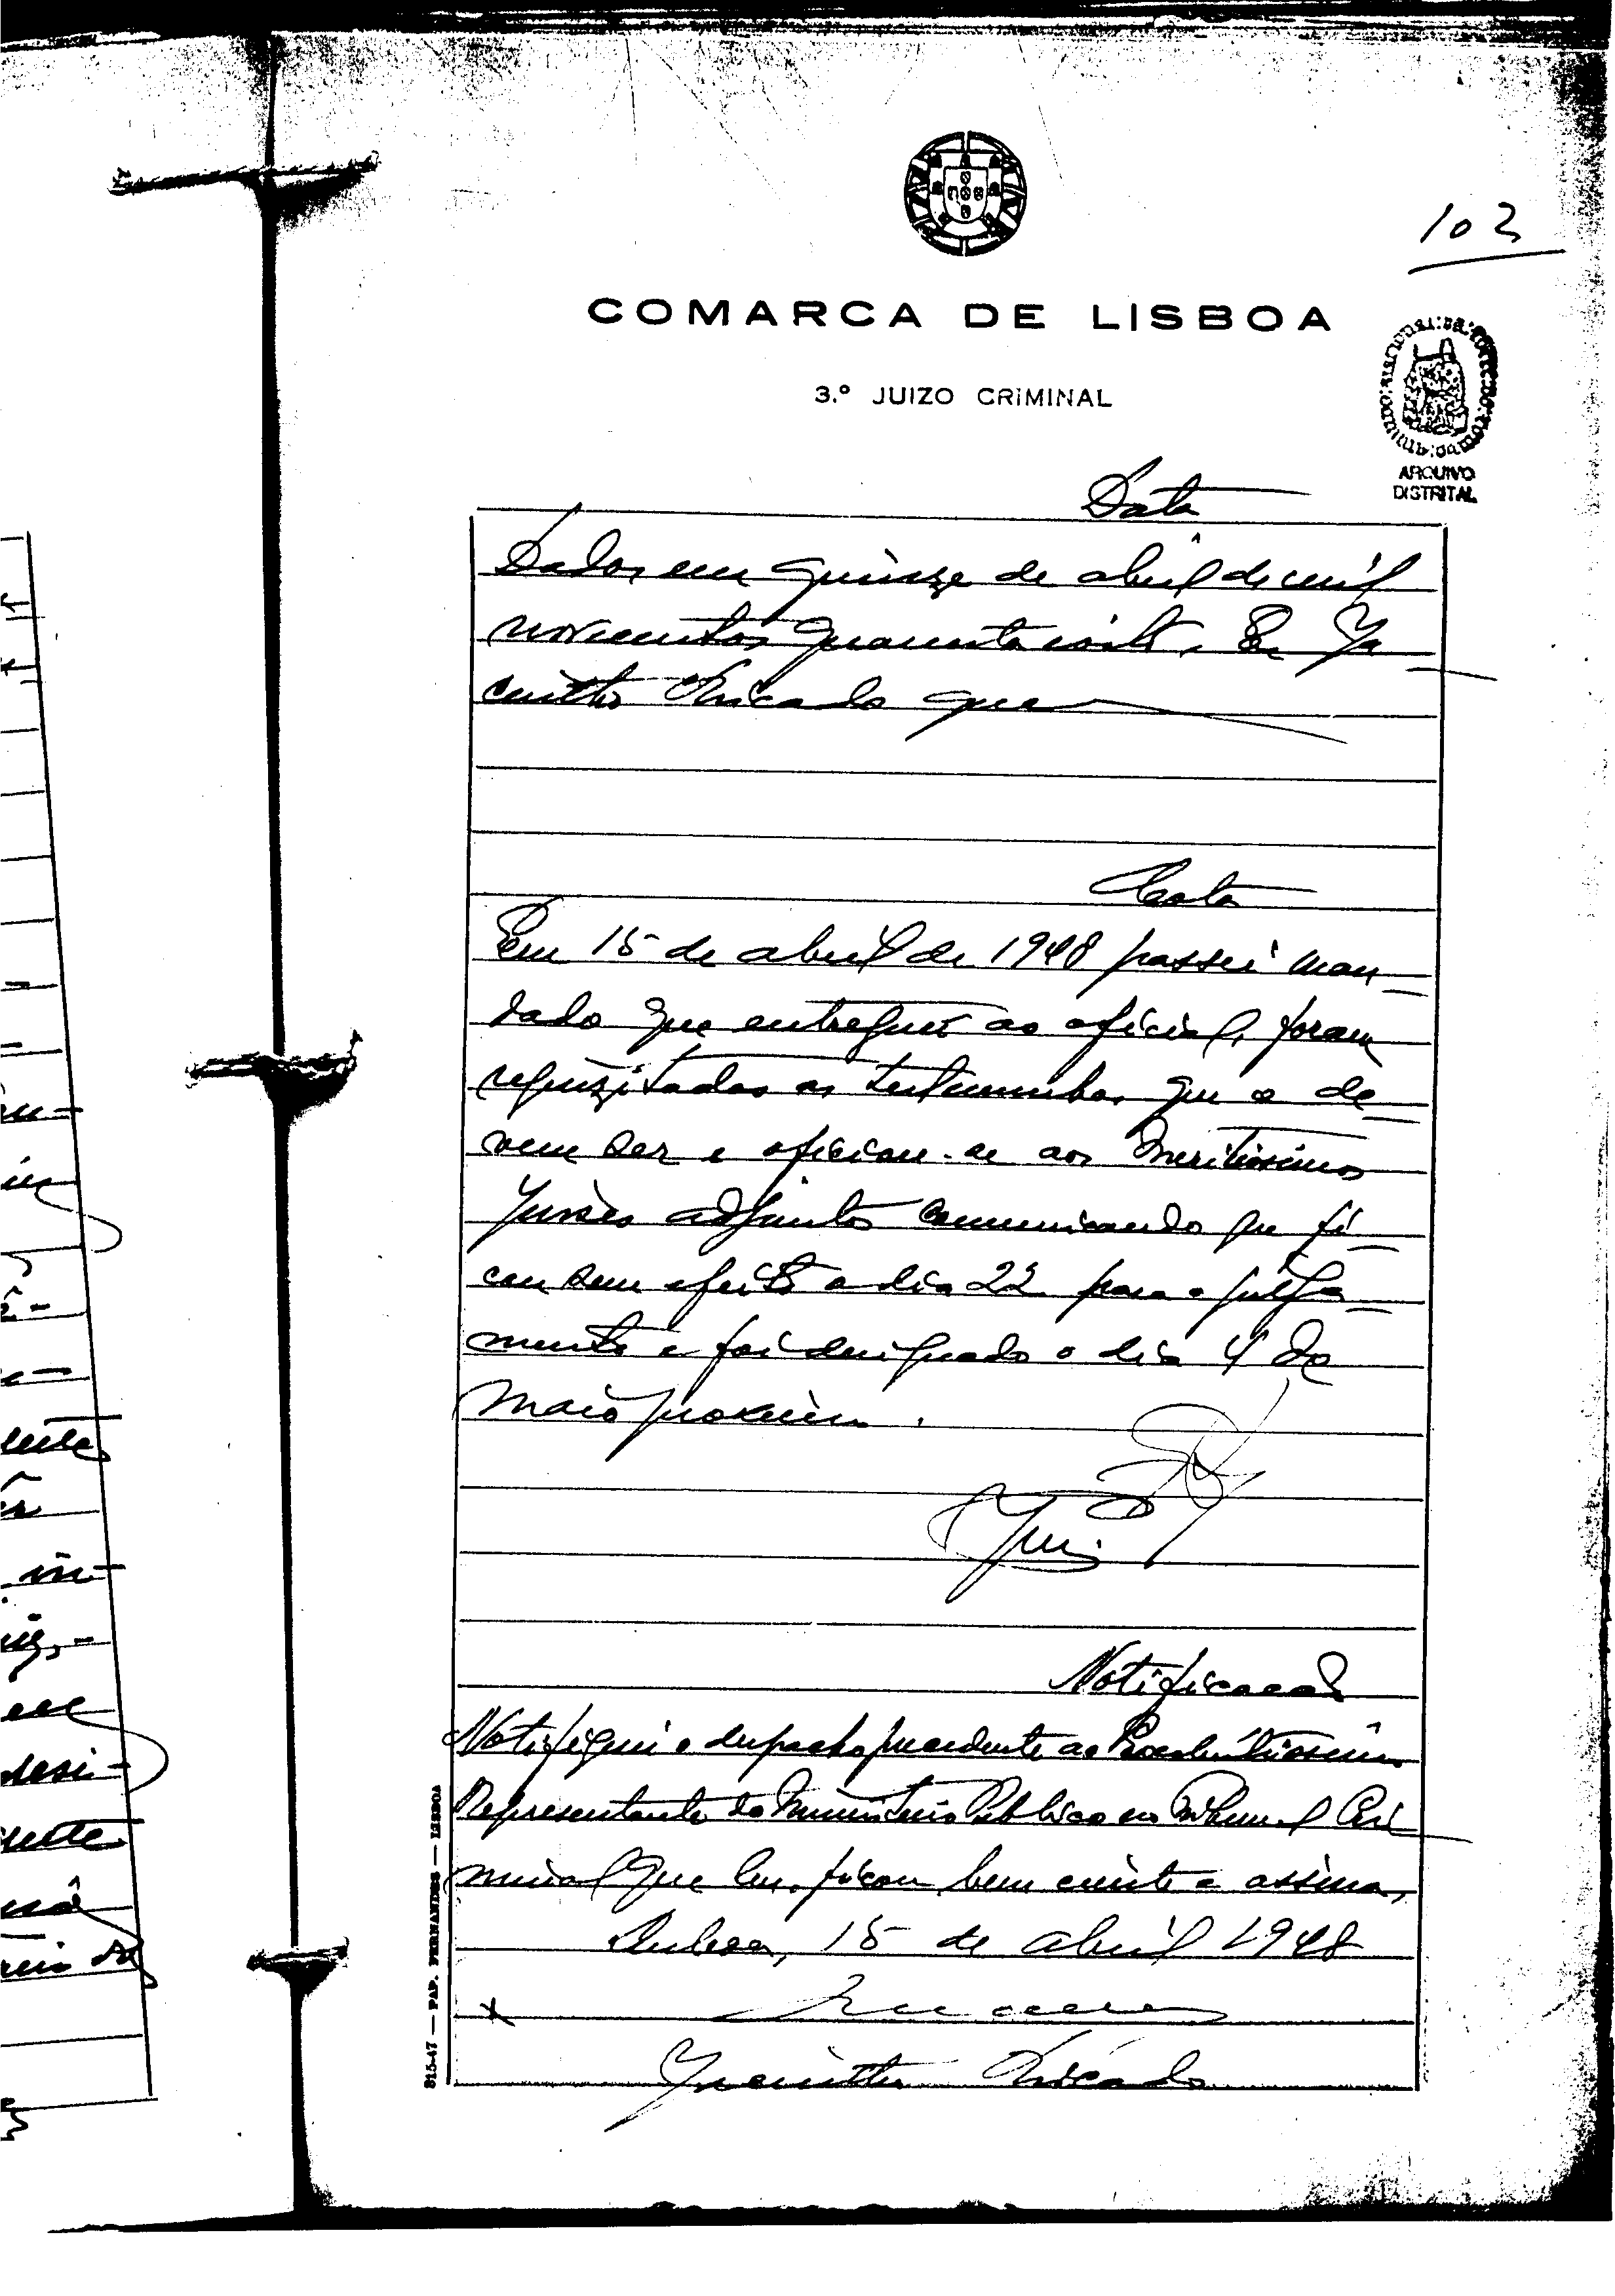 103
COMARCA DE LISBOA
3.º JUIZO CRIMINAL
ARQUIVO
DISTRITAL
Data
Dados em quinze de abril de mil
novecentos quarenta oito. Eu Ja
cintho Ricardo que
Cota
Em 15 de abril de 1948 passei man
dado que entreguei ao oficial, foram
requizitadas as testemunhas que o de
vem ser e oficiou-se aos Meritissimos
Juizes adjuntos comunicando que fi
cou sem efeito o dia 22 para o julga
mento e foi designado o dia 4 de
Maio proximo.
Notificacao
Notifiquei o despacho precedente ao Excelentissimo
Representante do Ministerio Publico no Tribunal Cri
minal que leu, ficou bem ciente e assina,
Lisboa, 15 de abril 1948
x
Jacintho Ricardo
815-47 — PAP. FERNANDES — LISBOA